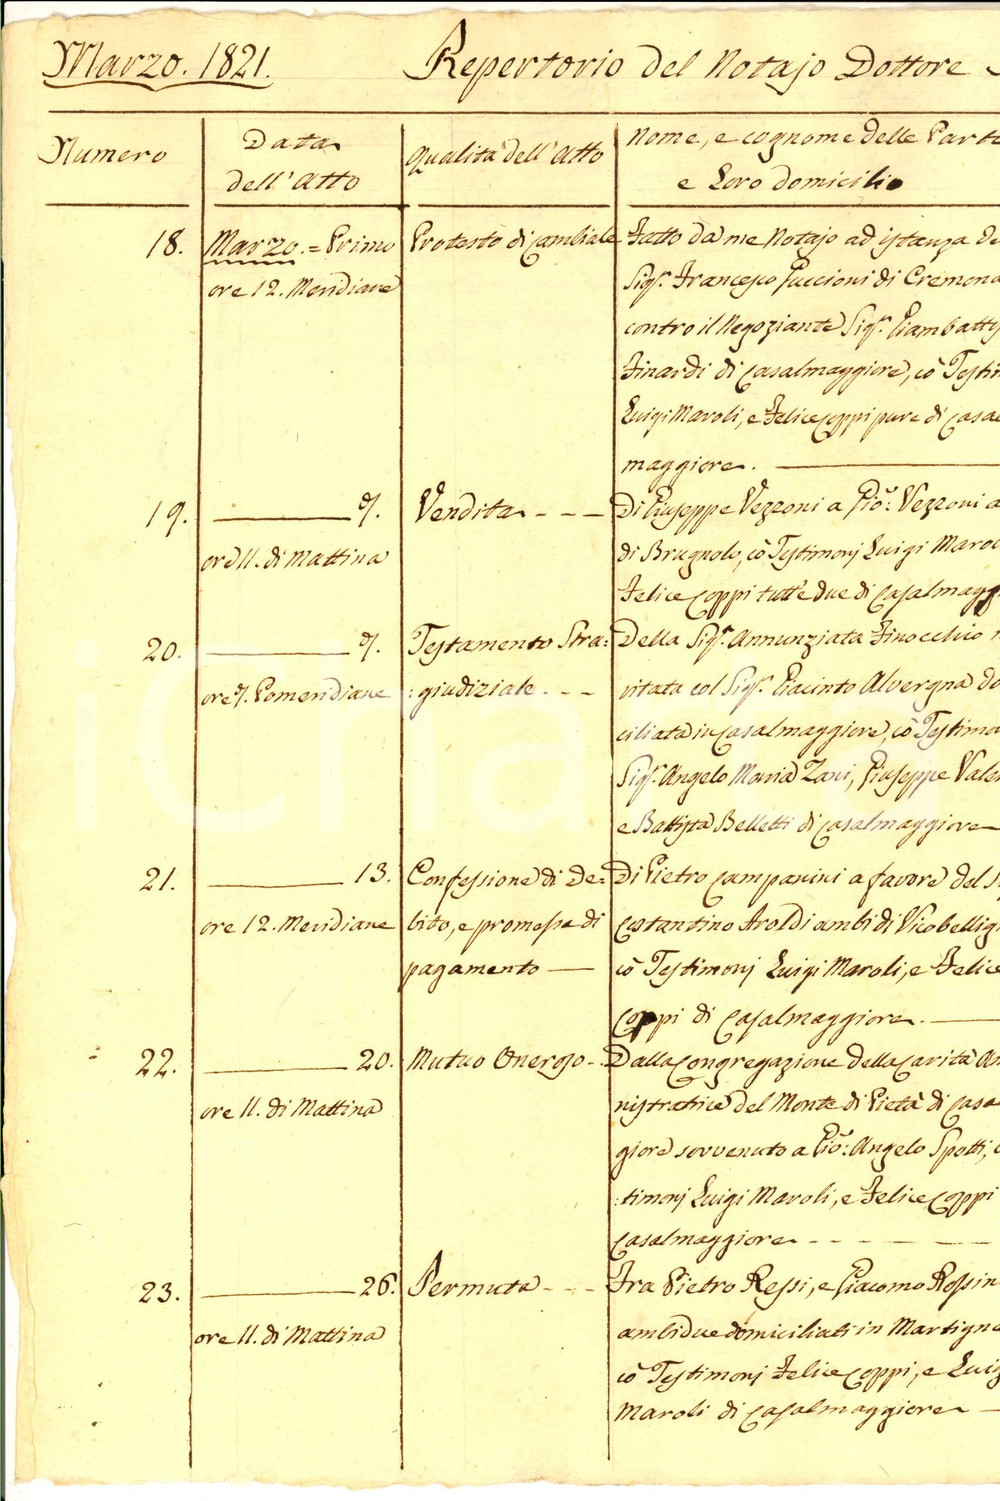 Marzo. 1821.
Repertorio del Notajo Dottore
Numero
Data
dell' Atto
Qualità dell' Atto
Nome, e cognome delle Parti
e Loro domicilio
18.
Marzo. = Primo
ore 12. Meridiane
Protesto di cambiale
Fatto da me Notajo ad istanza de
Sigr. Francesco Puccioni di Cremona
contro il Negoziante Sigr. Giambattis
Finardi di Casalmaggiore, cõ Testim
Luigi Maroli, e Felice Coppi pure di Casal
maggiore.
19.
9.
ore 11. di Mattina
Vendita
Di Giuseppe Vezzoni a Gio: Vezzoni a
di Brugnolo, cõ Testimonj Luigi Maro
Felice Coppi tutt'e due di Casalmagg
20.
9.
ore 9. Pomeridiane
Testamento Stra:
:giudiziale
Della Sigra. Annunziata Finocchio
vitata col Sigr. Giacinto Alvergna do
ciliata in Casalmaggiore, cõ Testimo
Sigr. Angelo Maria Zani, Giuseppe Vale
e Battista Belletti di Casalmaggiore
21.
13.
ore 12. Meridiane
Confessione di De:
bito, e promessa di
pagamento
Di Pietro Campanini a favore del S
Costantino Aroldi ambi di Vicobellig
cõ Testimonj Luigi Maroli, e Felice
Coppi di Casalmaggiore.
22.
20.
ore 11. di Mattina
Mutuo Oneroso
Dalla Congregazione della Carità Am
nistratice del Monte di Pietà di Casa
giore sovvenuto a Gio: Angelo Spotti,
:timonj Luigi Maroli, e Felice Coppi
Casalmaggiore
23.
26.
ore 11. di Mattina
Permuta
Fra Pietro Ressi, e Giacomo Rossin
ambidue domiciliati in Martigna
cõ Testimonj Felice Coppi, e Luig
Maroli di Casalmaggiore